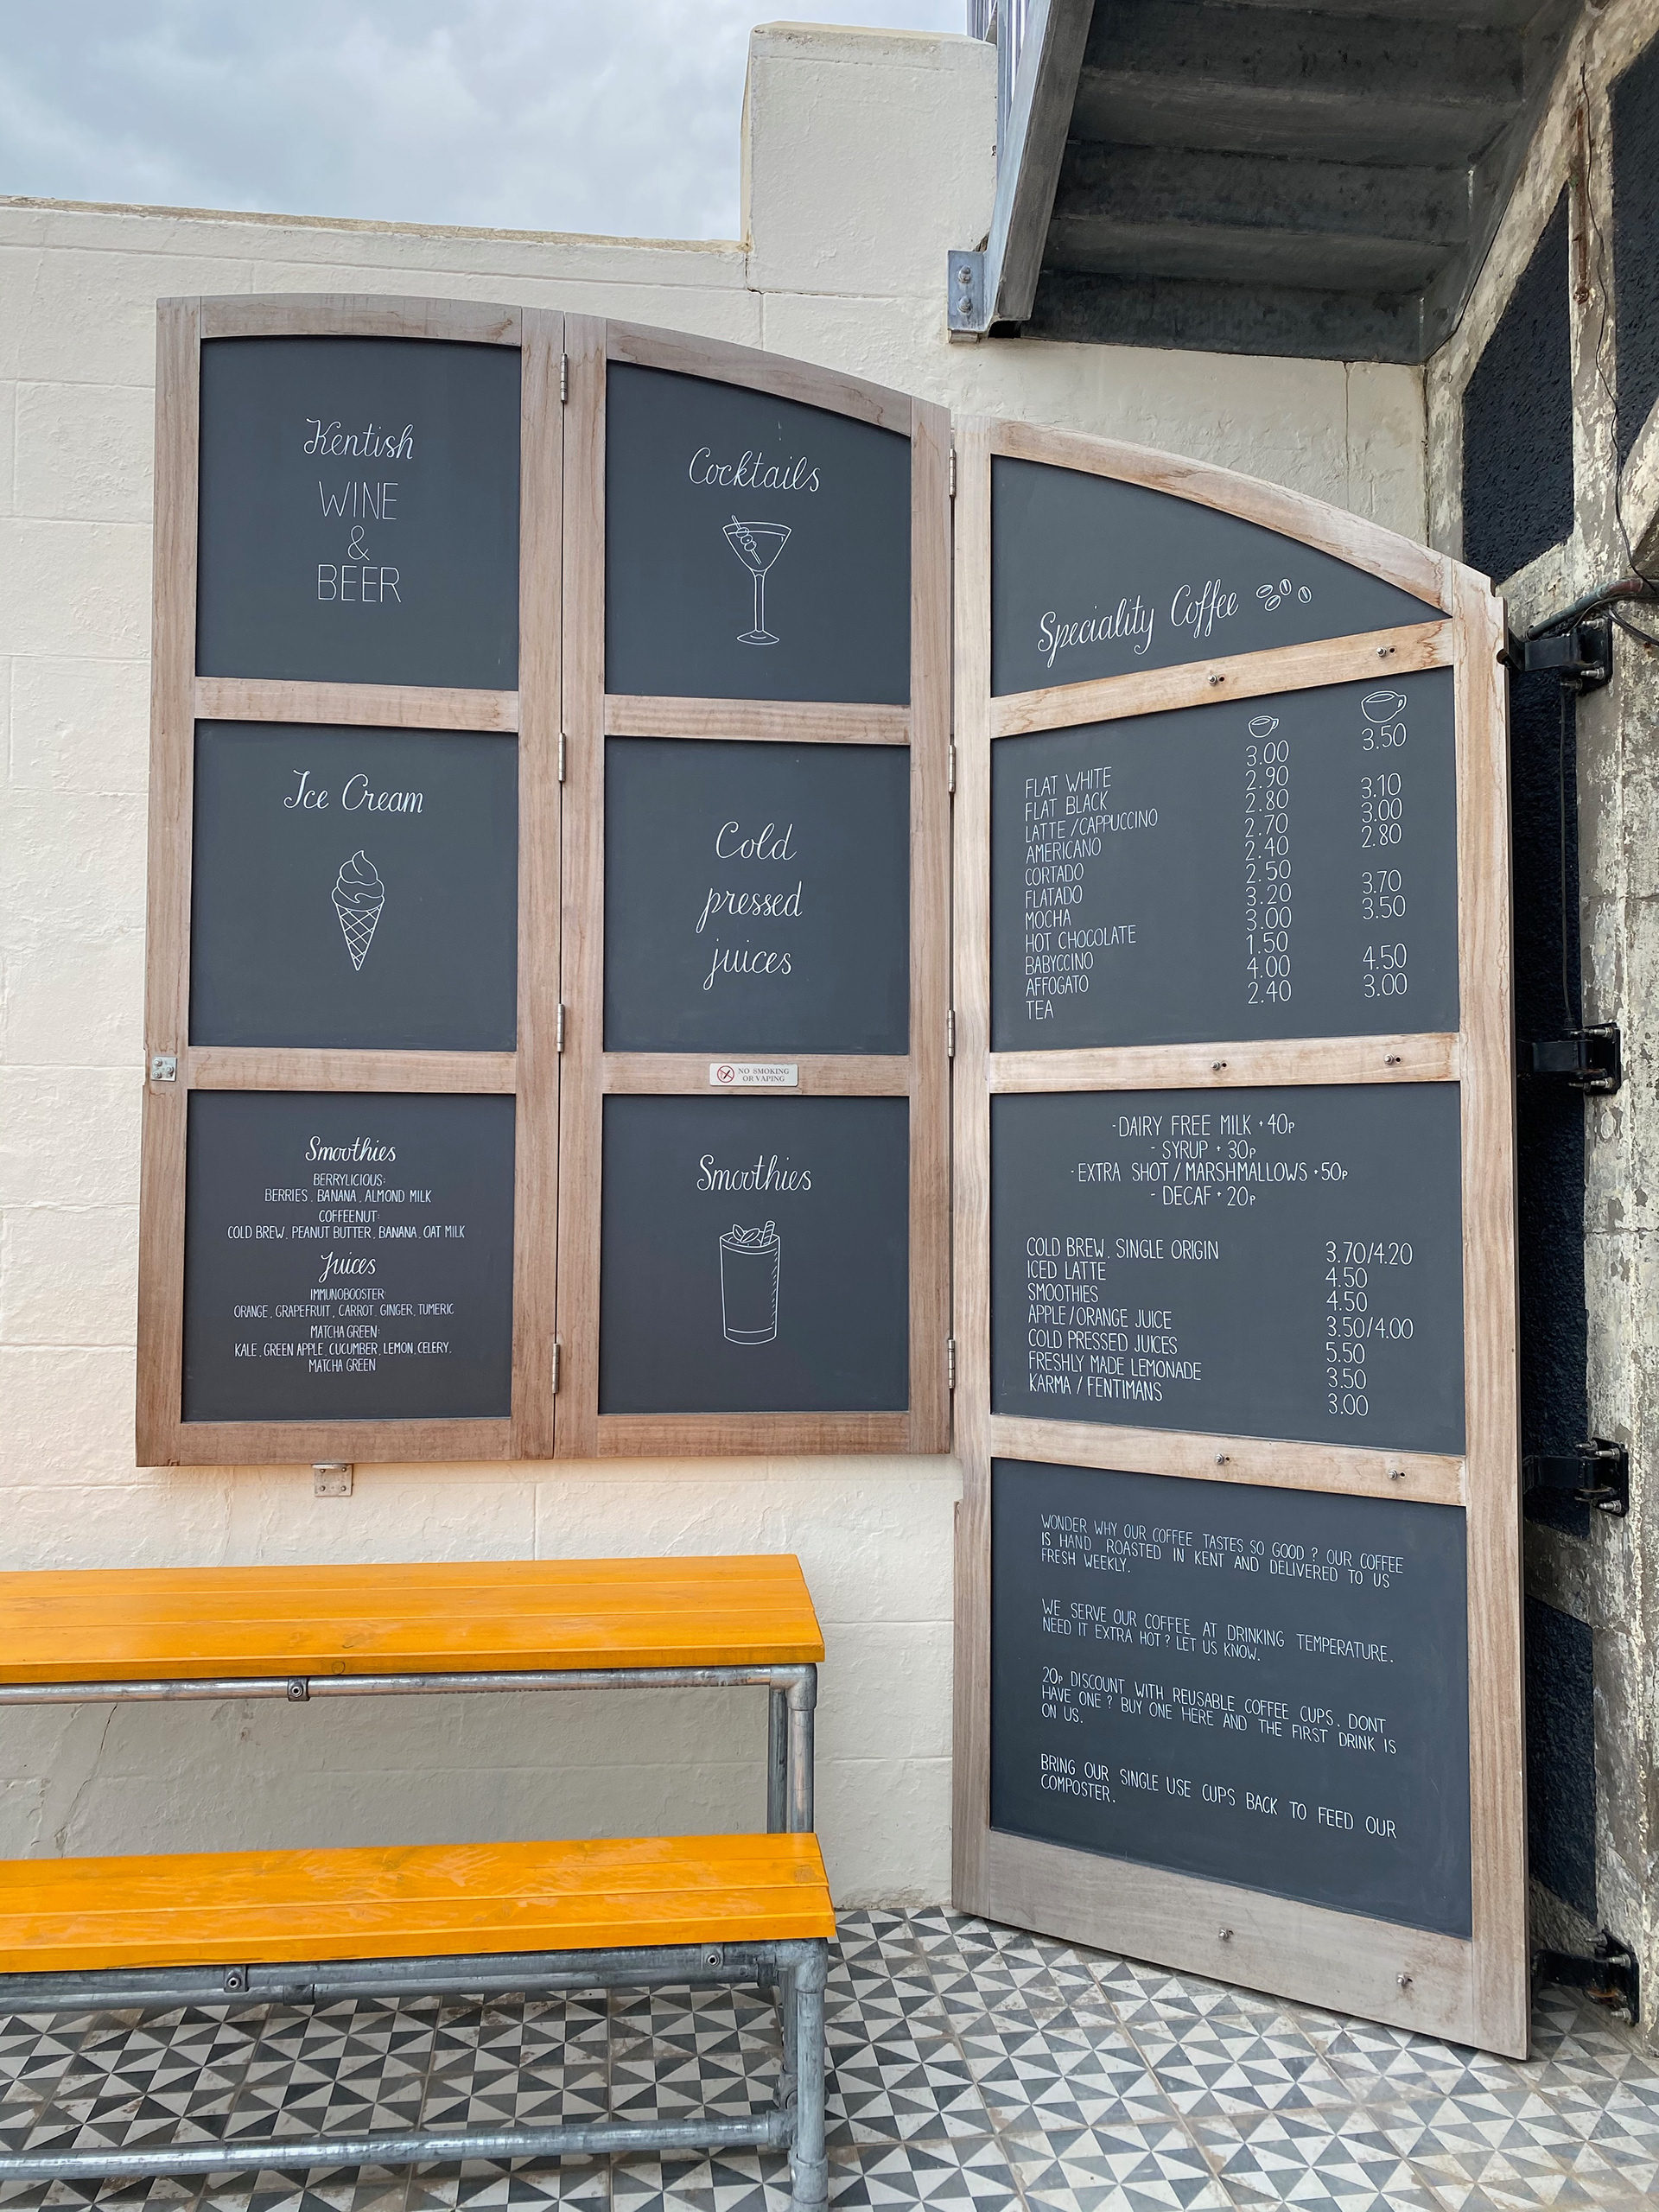 Kentish
WINE
&
BEER
Cocktails
Ice Cream
Cold
pressed
juices
NO SMOKING
OR VAPING
Smoothies
BERRYLICIOUS:
BERRIES, BANANA, ALMOND MILK
COFFEENUT:
COLD BREW, PEANUT BUTTER, BANANA, OAT MILK
Juices
IMMUNOBOOSTER:
ORANGE, GRAPEFRUIT, CARROT, GINGER, TUMERIC
MATCHA GREEN:
KALE, GREEN APPLE, CUCUMBER, LEMON, CELERY,
MATCHA GREEN
Smoothies
Speciality Coffee
FLAT WHITE 3.00 3.50
FLAT BLACK 2.90
LATTE / CAPPUCCINO 2.80 3.10
AMERICANO 2.70 3.00
CORTADO 2.40 2.80
FLATADO 2.50
MOCHA 3.20 3.70
HOT CHOCOLATE 3.00 3.50
BABYCCINO 1.50
AFFOGATO 4.00 4.50
TEA 2.40 3.00
- DAIRY FREE MILK + 40p
- SYRUP + 30p
- EXTRA SHOT / MARSHMALLOWS + 50p
- DECAF + 20p
COLD BREW, SINGLE ORIGIN 3.70/4.20
ICED LATTE 4.50
SMOOTHIES 4.50
APPLE/ORANGE JUICE 3.50/4.00
COLD PRESSED JUICES 5.50
FRESHLY MADE LEMONADE 3.50
KARMA / FENTIMANS 3.00
WONDER WHY OUR COFFEE TASTES SO GOOD? OUR COFFEE
IS HAND ROASTED IN KENT AND DELIVERED TO US
FRESH WEEKLY.
WE SERVE OUR COFFEE AT DRINKING TEMPERATURE.
NEED IT EXTRA HOT? LET US KNOW.
20p DISCOUNT WITH REUSABLE COFFEE CUPS. DONT
HAVE ONE? BUY ONE HERE AND THE FIRST DRINK IS
ON US.
BRING OUR SINGLE USE CUPS BACK TO FEED OUR
COMPOSTER.